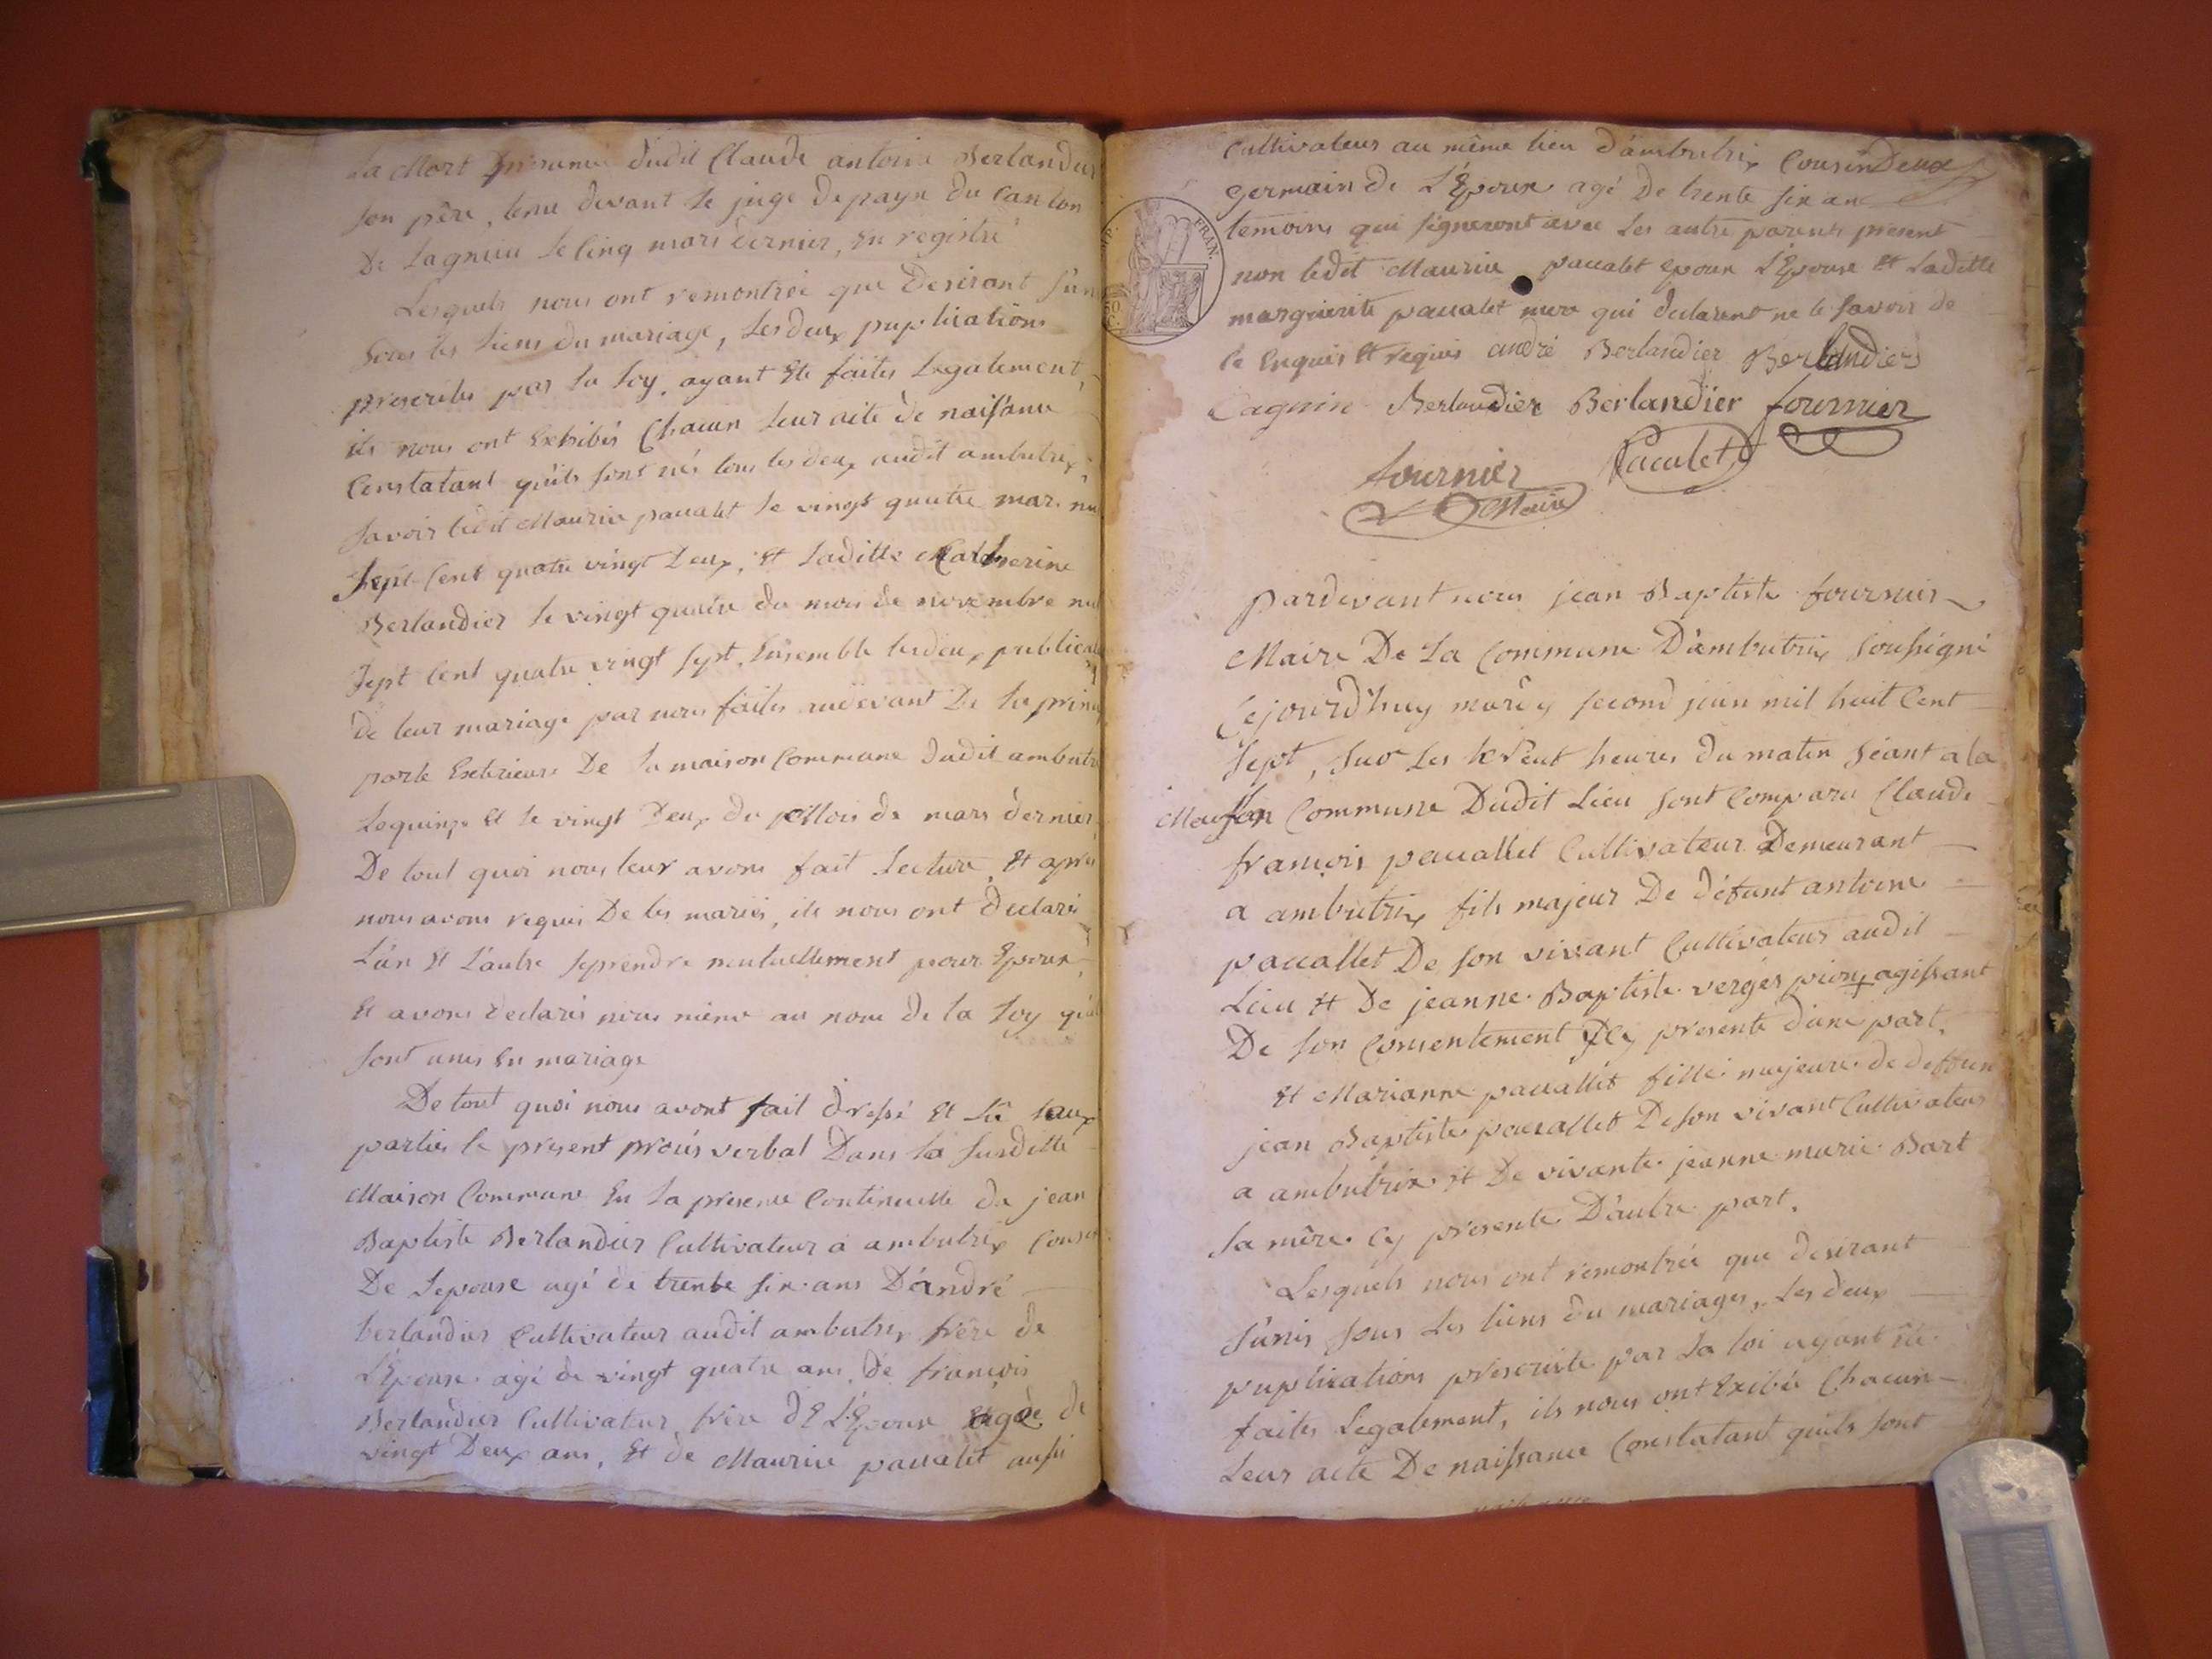 La Mort presumée dudit Claude antoine Berlandier
son père, tenu devant le juge de payx du Canton
De Lagnieu le Cinq mars dernier, En registré
Lesquels nous ont remontrée que Desirant s'un
sous les Liens du mariage, Les deux puplications
prescrites par La Loy, ayant Ete faites Legalement,
ils nous ont Exhibés Chacun leur acte de naissance
Constatant qu'ils sont nés tous les deux audit ambutrix,
savoir ledit Maurice pacalet le vingt quatre mars mil
Sept Cent quatre vingt Deux, Et Laditte Catherine
Berlandier le vingt quatre du mois de novembre mil
Sept Cent quatre vingt sept, Ensemble les deux publica
de leur mariage par nous faites audevant De la prin
porte Exterieure De la maison Commune dudit ambutr
Lequinze Et le vingt Deux du Mois de mars dernier,
De tout quoi nous leur avons fait Lecture, Et après
nous avons requis De les mariés, ils nous ont Declaré
L'un Et L'autre seprendre mutuellement pour Epoux,
Et avons declarés nous même au nom de la Loy qu'il
sont unis En mariage
De tout quoi nous avont fait dressé Et Lû aux
parties le present procés verbal Dans la susditte
Maison Commune En La presence Continuelle de jean
Baptiste Berlandier Cultivateur a ambutrix Cousin
De Lepouse agé de trente six ans D'andré
berlandier Cultivateur audit ambutrix frère de
L'Epouse agé de vingt quatre ans, de françois
Berlandier Cultivateur frère dE L'Epouse agé de
vingt Deux ans, Et de Maurice pacalet aussi
Cultivateur au même lieu d'ambutrix Cousin Deux
germain de L'Epoux agé De trente six ans
temoins qui signeront avec Les autre parents present
non ledit Maurice pacalet epoux L'Epouse Et Laditte
marguerite pacalet mere qui declarent ne le savoir de
le Enquis Et requis andré Berlandier Berlandier
Cagnin Berlandier Berlandier fournier
Pacalet
fournier
Maire
FRAN.
pardevant nous jean Baptiste fournier
Maire De La Commune D'ambutrix soussigné
Cejourd'huy mardy second juin mil huit Cent
sept, sur Les heures du matin séant a la
Maison Commune Dudit Lieu sont Comparu Claude
françois pacallet Cultivateur Demeurant
a ambutrix fils majeur De défunt antoine
pacallet De son vivant Cultivateur audit
Lieu Et De jeanne Baptiste vergés pion agissant
De son Consentement Cy presente d'une part,
Et Marianne pacallet fille majeure de deffun
jean Baptiste pacallet De son vivant Cultivateur
a ambutrix Et De vivante jeanne marie Bart
sa mère Cy presente D'autre part,
Lesquels nous ont remontrée que desirant
s'unir sous Les liens du mariages, Les deux
puplications prescrite par La loi ayant été
faites Légalement, ils nous ont Exibée Chacun
Leur acte De naissance Constatant quils sont